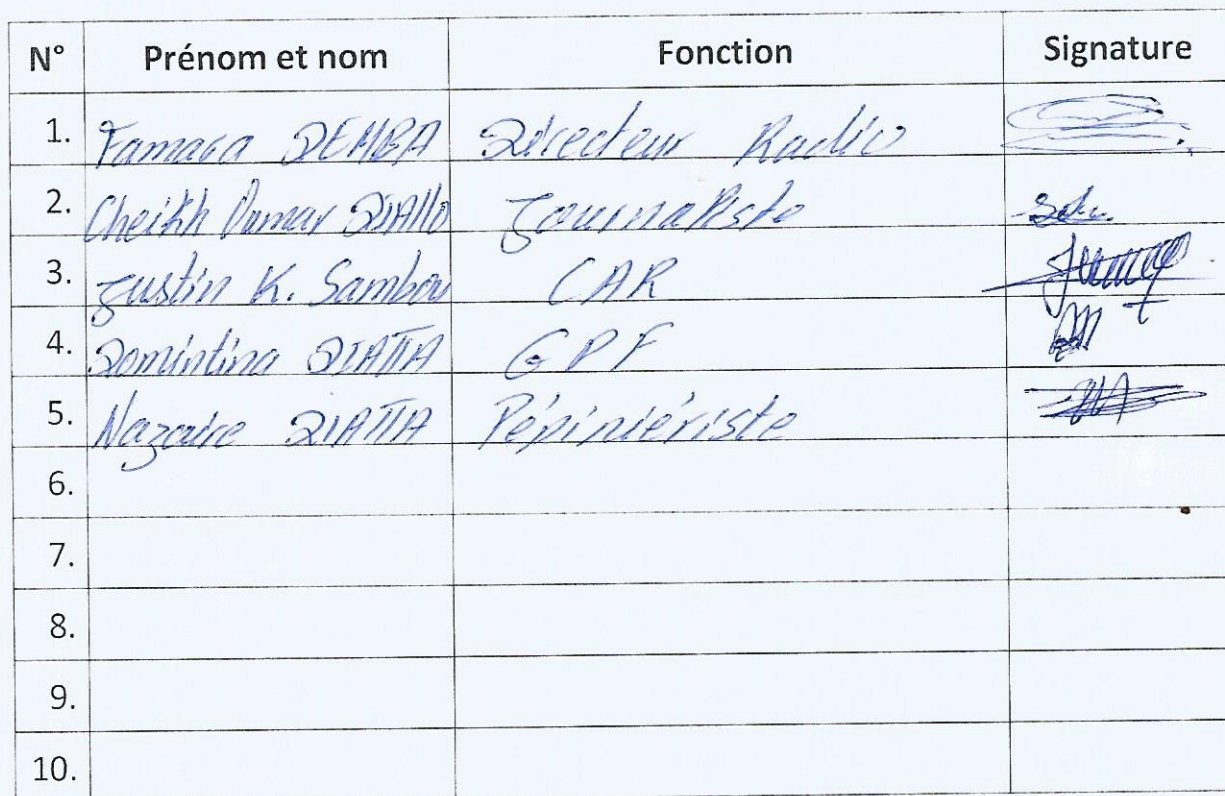 N° Prénom et nom Fonction Signature
1. Famara DEMBA Directeur Radio
2. Cheikh Oumar DIALLO Journaliste
3. Justin K. Sambou CAR
4. Domintina DIATTA GPF
5. Nazaire DIATTA Pépiniériste
6.
7.
8.
9.
10.